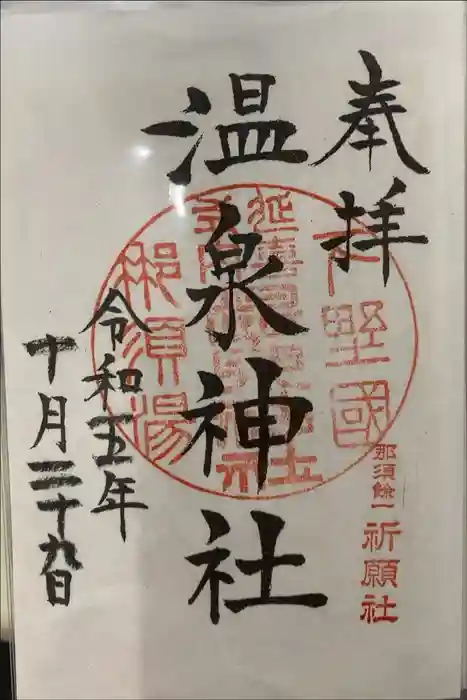 奉拝
下野國
延喜式内
温泉神社
那須湯
那須餘一
祈願社
令和五年
十月二十九日